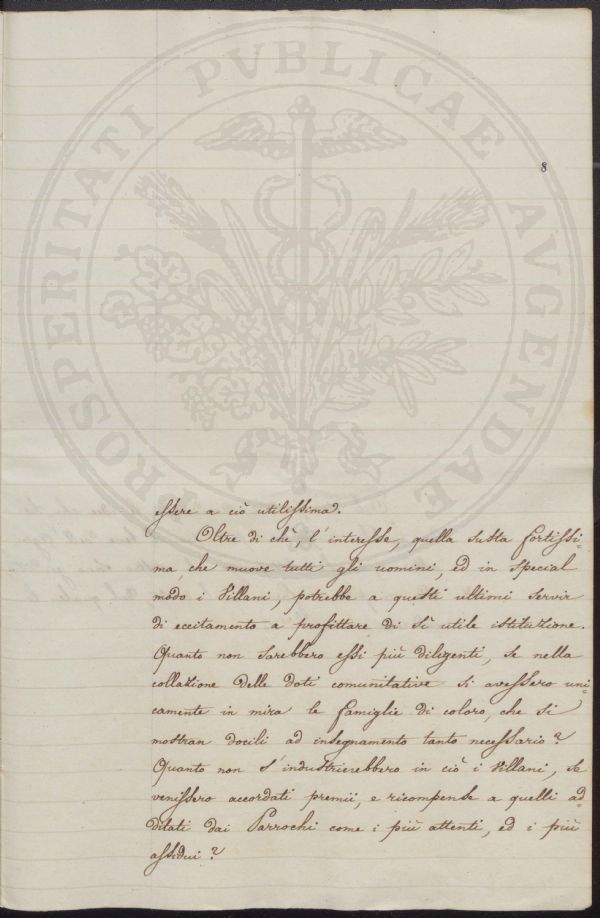 PROSPERITATI PVBLICAE AVGENDAE
8
essere a ciò utilissima.
Oltre di chè, l'interesse, quella susta fortissi-
ma che muove tutti gli uomini, ed in special
modo i Villani, potrebbe a questi ultimi servir
di eccitamento a profittare di sì utile istituzione.
Quanto non sarebbero essi più diligenti, se nella
collazione delle doti comunitative si avessero uni-
camente in mira le famiglie di coloro, che si
mostran docili ad insegnamento tanto necessario?
Quanto non s'industrierebbero in ciò i Villani, se
venissero accordati premii, e ricompense a quelli ad-
ditati dai Parrochi come i più attenti, ed i più
assidui?